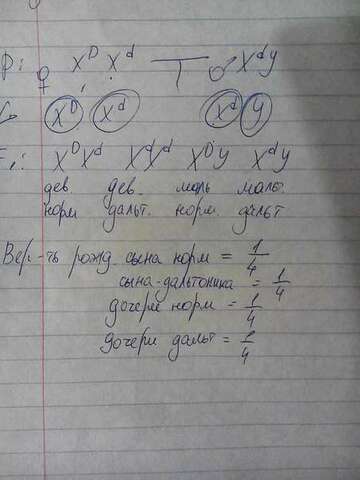 P: ♀ X^D X^d ♂ X^d y
G X^D X^d X^d y
F₁: X^D X^d X^d X^d X^D y X^d y
дев. дев. маль мальт.
норм дальт. норм. дальт
Вер-ть рожд. сына норм = 1/4
сына-дальтоника = 1/4
дочери норм = 1/4
дочери дальт = 1/4